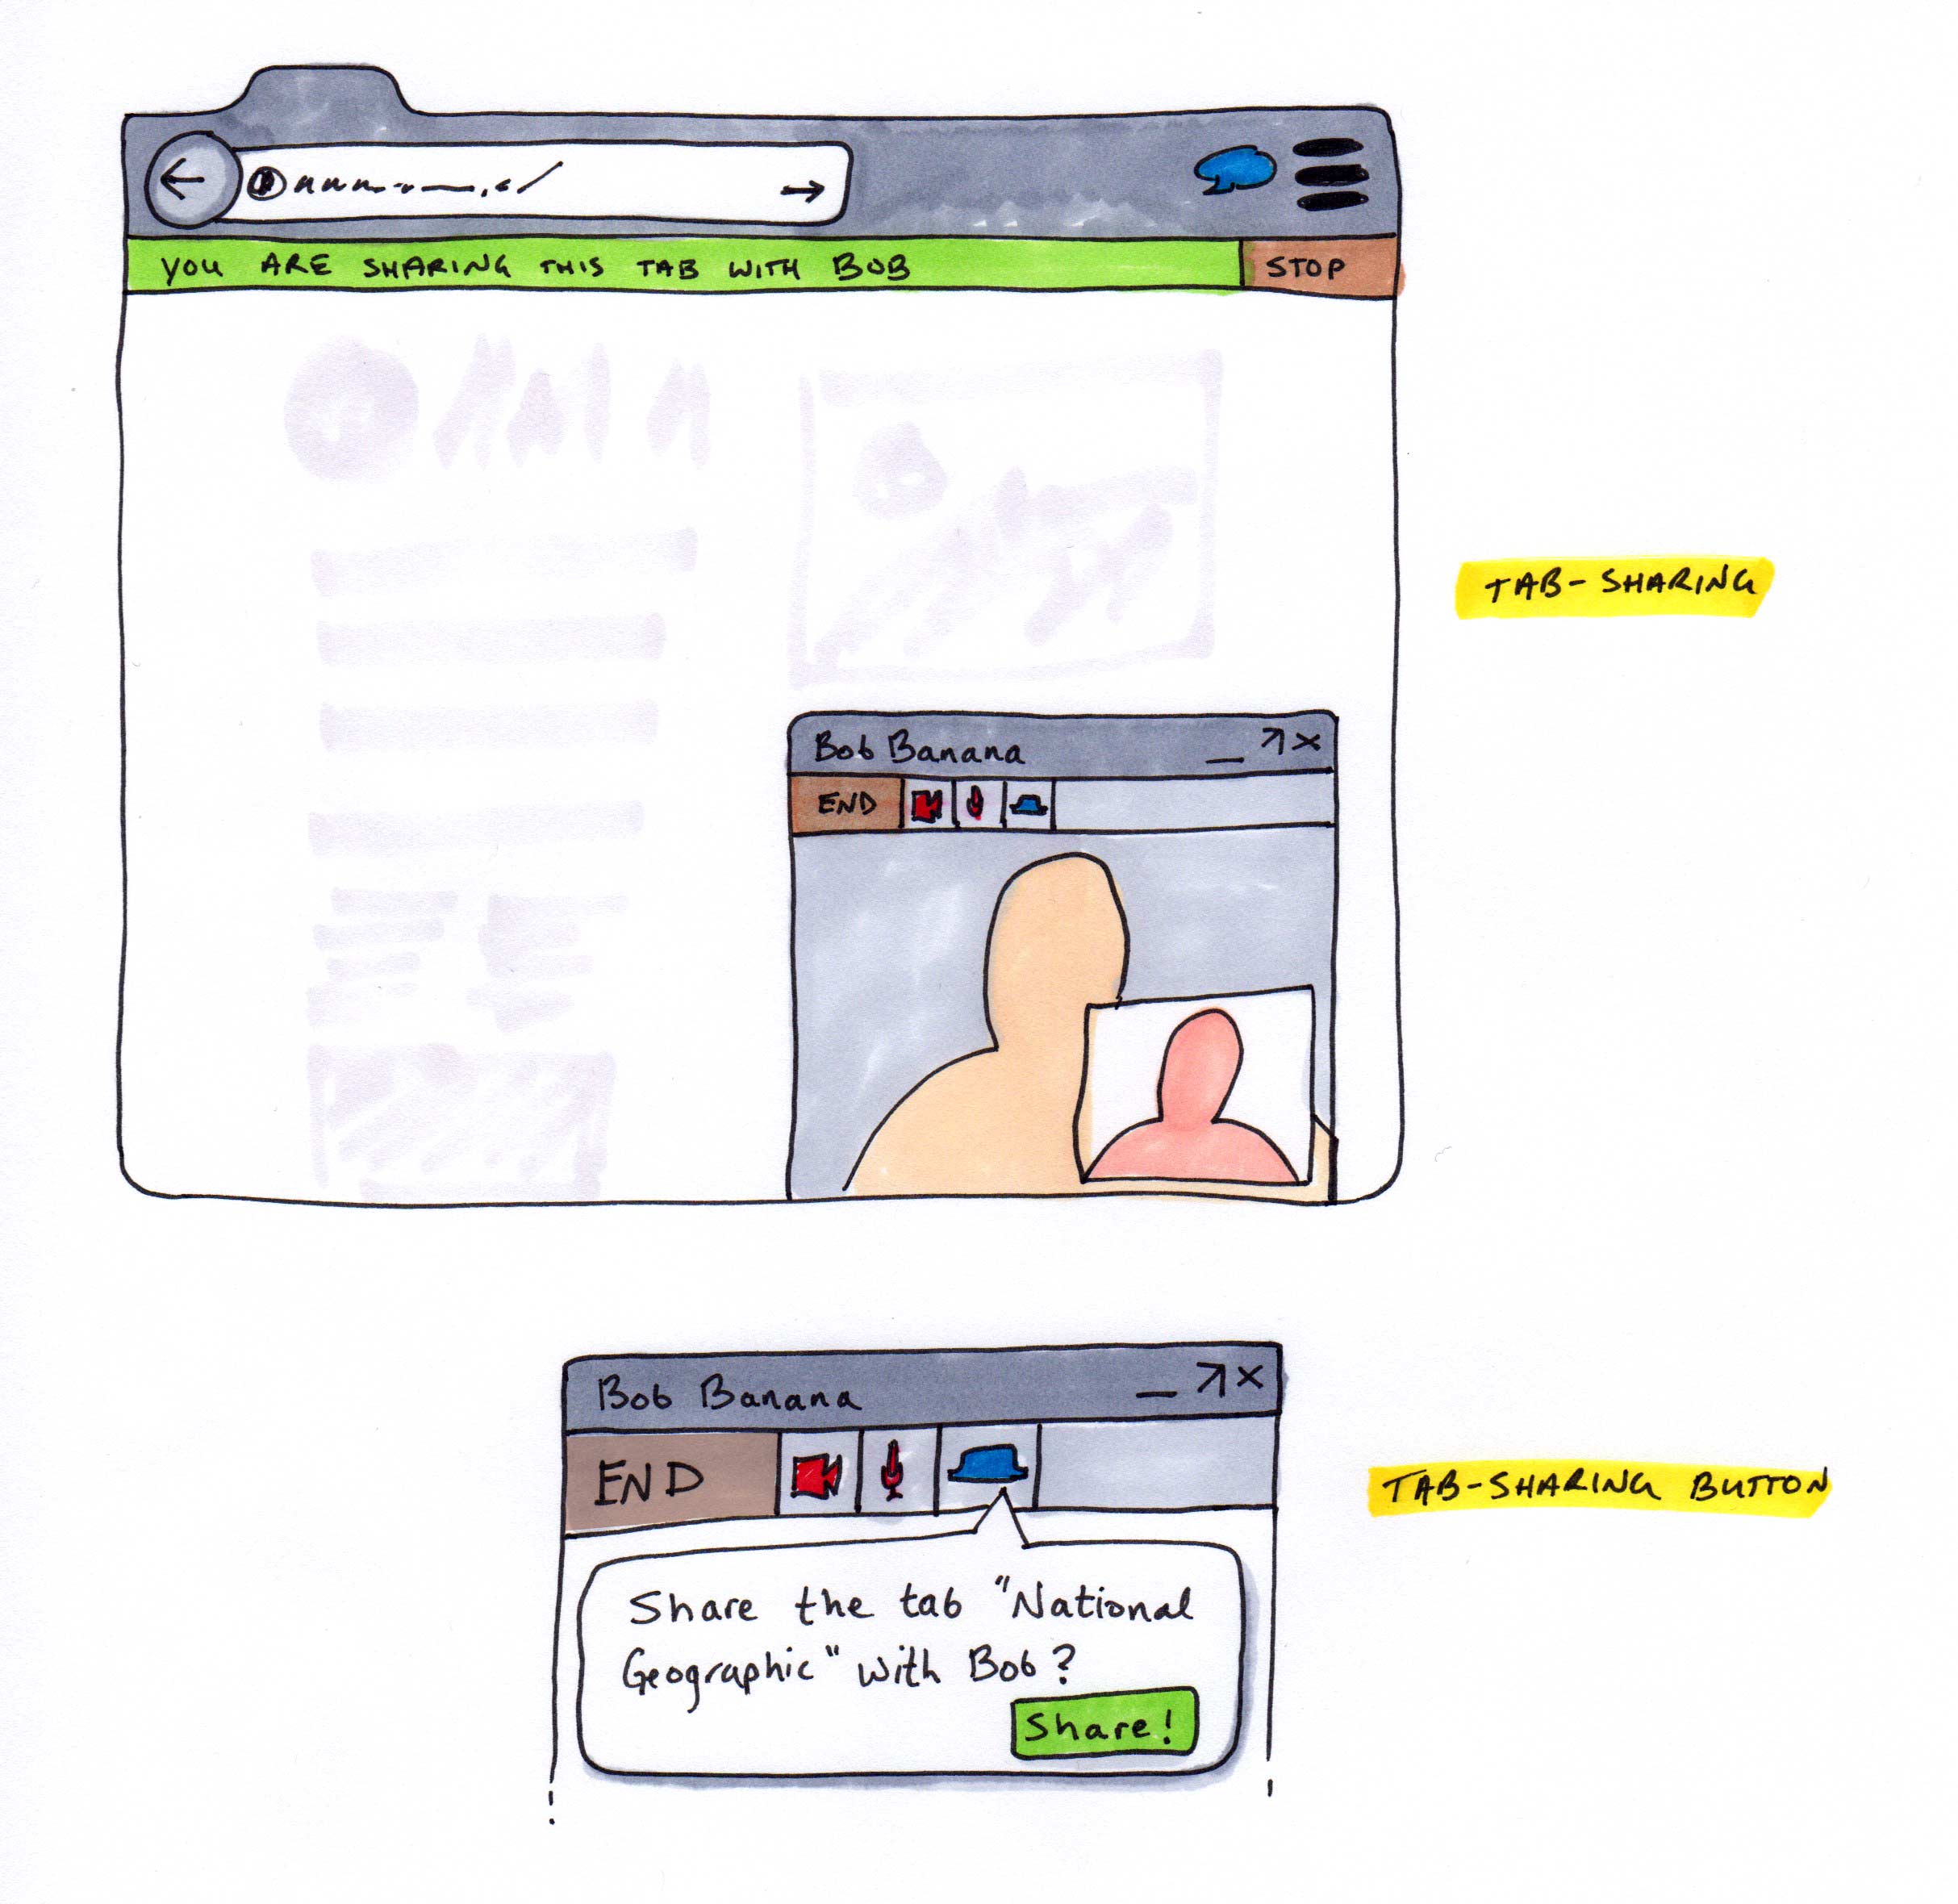 YOU ARE SHARING THIS TAB WITH BOB
STOP
TAB-SHARING
Bob Banana
END
Bob Banana
END
TAB-SHARING BUTTON
Share the tab "National
Geographic" with Bob?
Share!